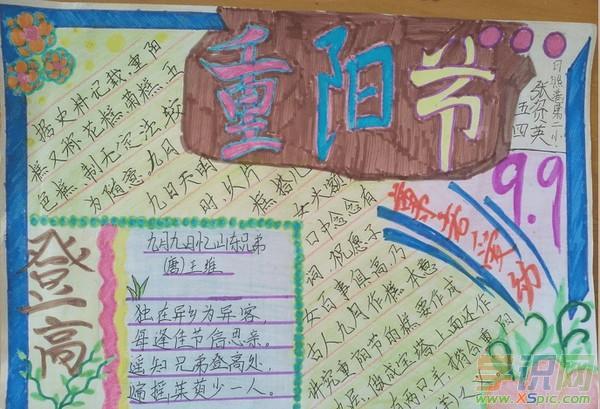 重阳节
日照港第二小
五四
9.9
尊老爱幼
登高
九月九日忆山东兄弟
(唐)王维
独在异乡为异客,
每逢佳节倍思亲。
遥知兄弟登高处,
遍插茱萸少一人。
据史料记载,重阳
糕又称花糕菊糕五
色糕,制无定法,较
为随意。九月
九日天明
时,以片
糕搭儿
女头额
口中念念有
词,祝愿子
女百事俱高乃
古人九月作糕本意
讲究重阳节的糕要作成
九层,像座宝塔上面还作
两只羊,
学识网
www.XSpic.com